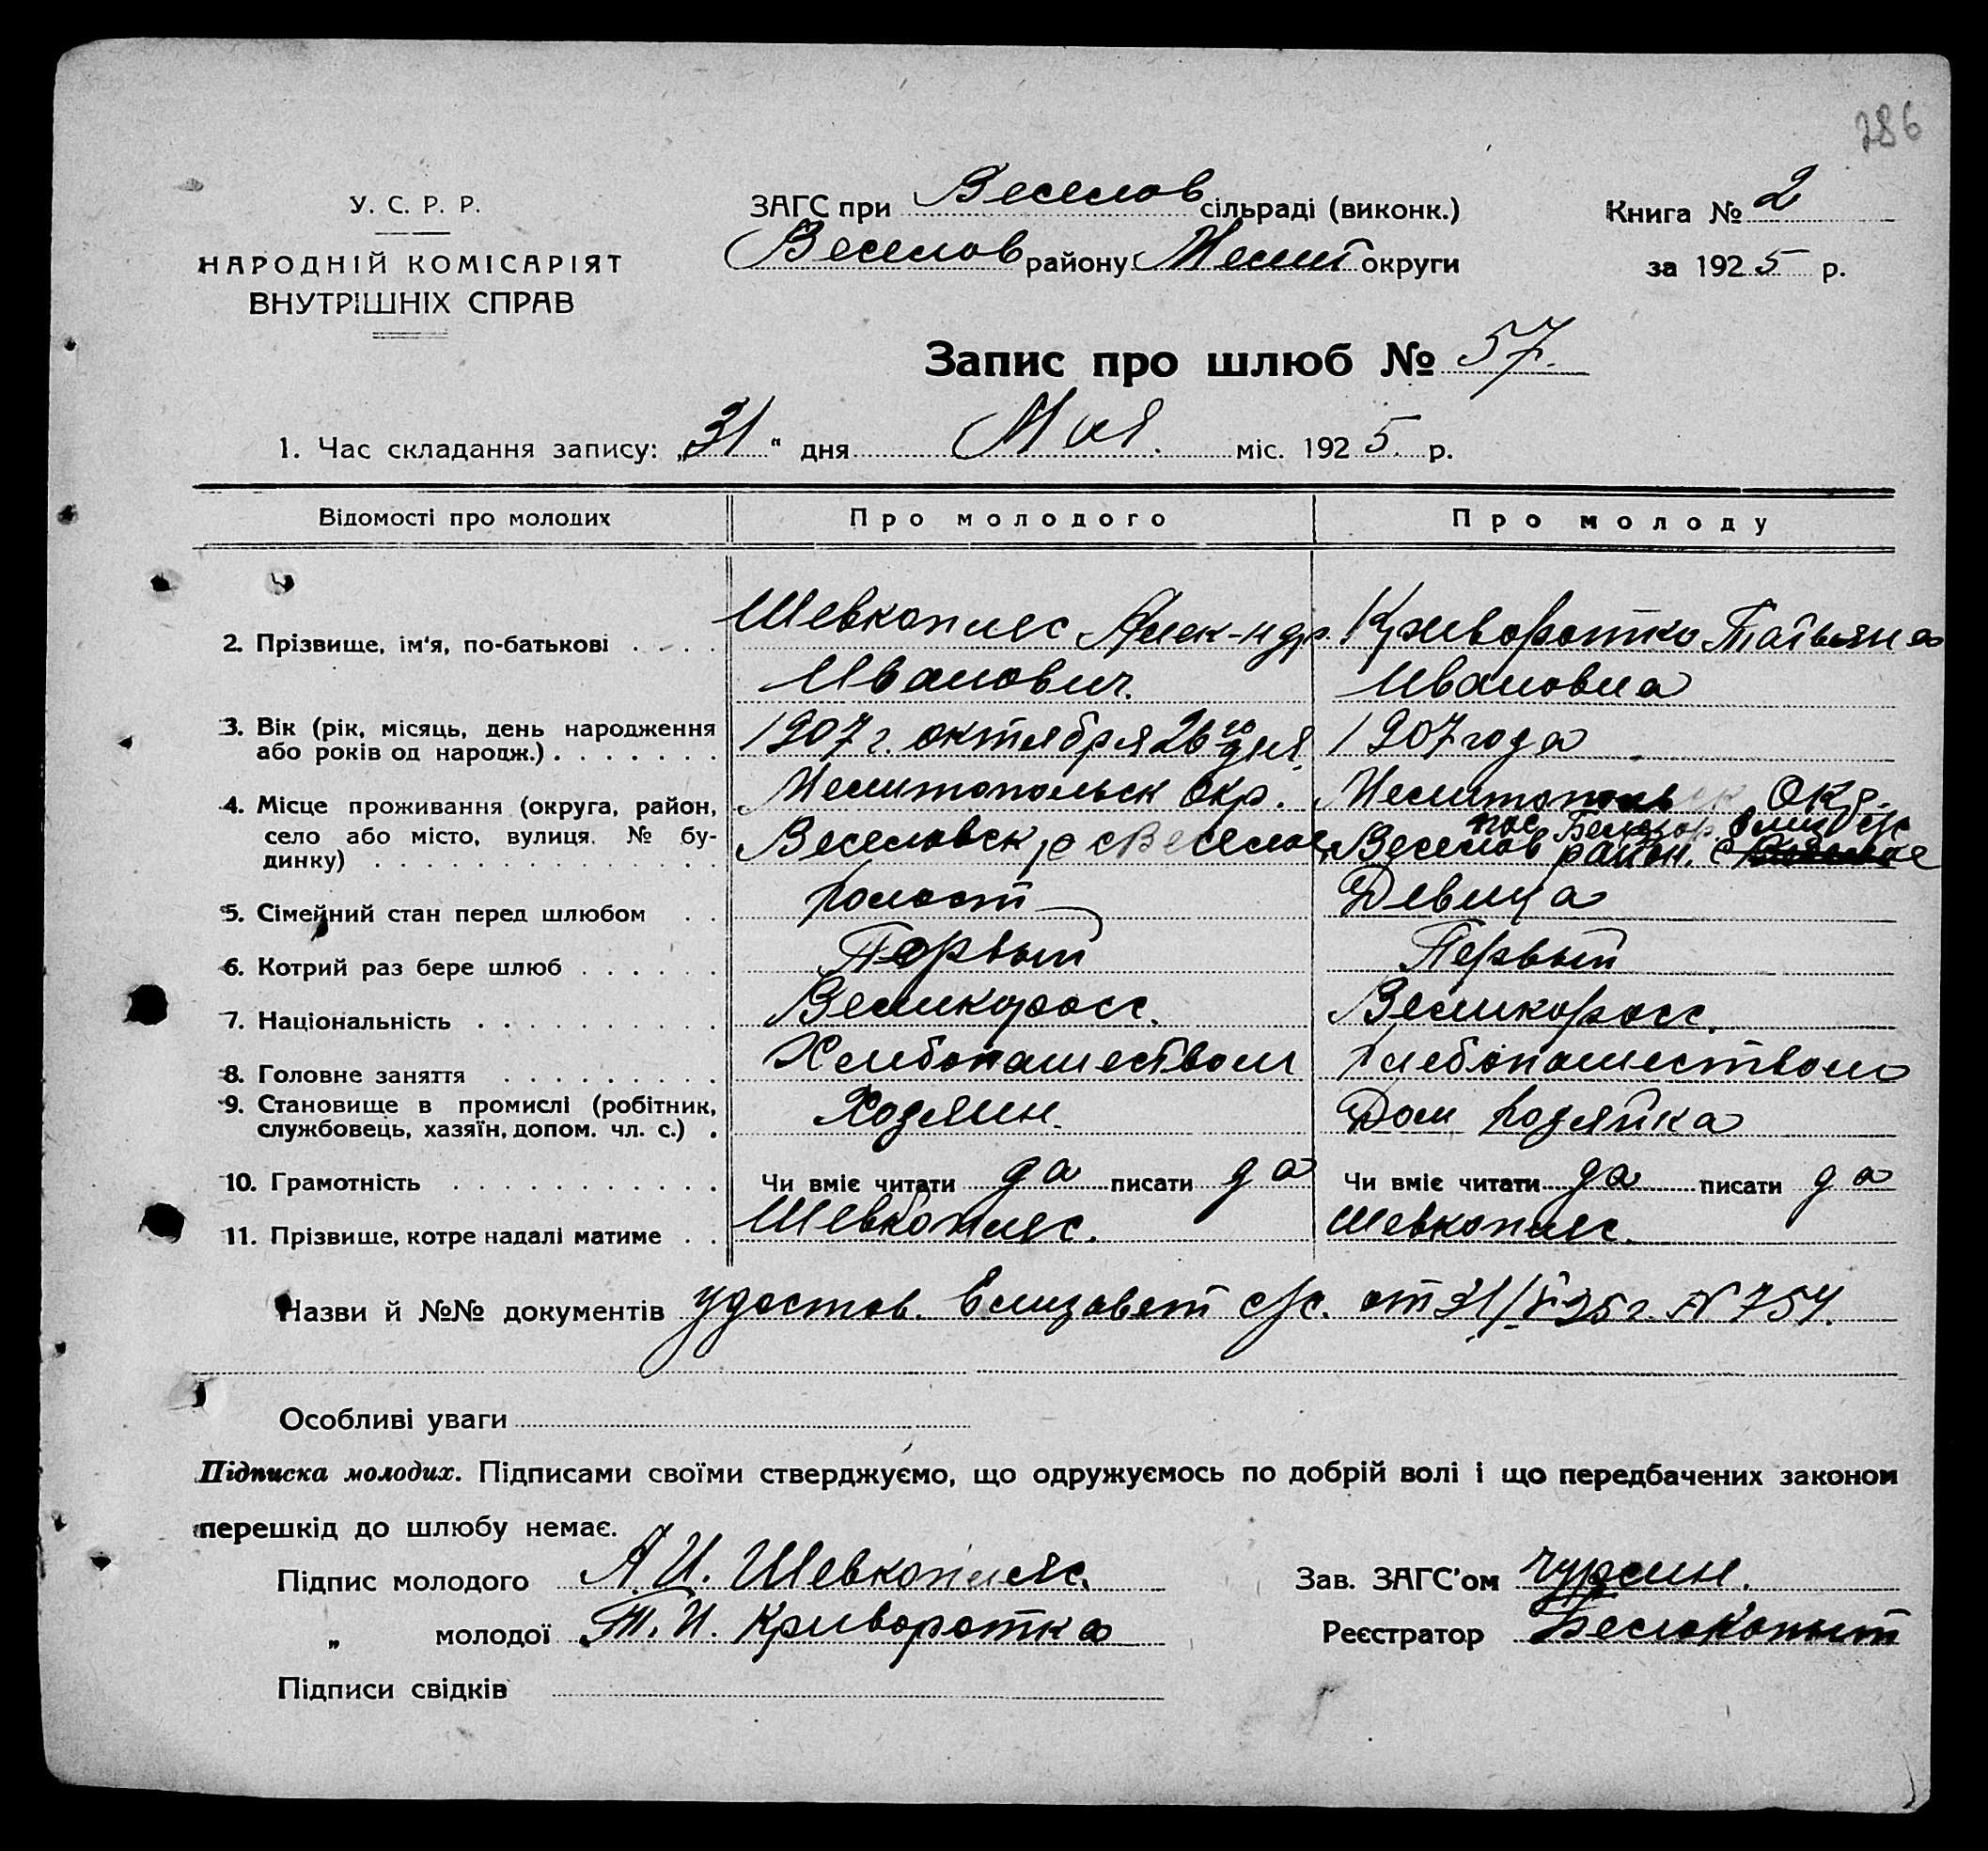 286
У. С. Р. Р.
НАРОДНІЙ КОМІСАРІЯТ
ВНУТРІШНІХ СПРАВ
ЗАГС при Веселов сільраді (виконк.)
Веселов району Мелит округи
Книга № 2
за 1925 р.
Запис про шлюб № 57.
1. Час складання запису: „31" дня Мая. міс. 1925. р.
Відомості про молодих Про молодого Про молоду
2. Прізвище, ім'я, по-батькові . . . . Шевкопляс Алек-ндр. Криворотко Татьяна
Иванович. Ивановна
3. Вік (рік, місяць, день народження
або років од народж.) . . . . . . . 1907 г. октября 26го дня. 1907 года
4. Місце проживання (округа, район, Мелитопольск Окр. Мелитополь Окр.
село або місто, вулиця, № бу- пос. Елиз с/с
динку) . . . . . . . . . . . . Веселовск р с Веселое, Веселов район. с
5. Сімейний стан перед шлюбом . . холост Девица
6. Котрий раз бере шлюб . . . . . . Первый Первый
7. Національність . . . . . . . . . . Великоросс. Великоросс.
8. Головне заняття . . . . . . . . . Хлебопашеством хлебопашеством
9. Становище в промислі (робітник,
службовець, хазяїн, допом. чл. с.) . Хозяин. Дом хозяйка
10. Грамотність . . . . . . . . . . . Чи вміє читати да писати да Чи вміє читати да писати да
11. Прізвище, котре надалі матиме . . Шевкопляс. Шевкопляс.
Назви й №№ документів удостов. Елизавет с/с. от 31/V 25 г. N 754.
Особливі уваги
Підписка молодих. Підписами своїми стверджуємо, що одружуємось по добрій волі і що передбачених законом
перешкід до шлюбу немає.
Підпис молодого А. И. Шевкопляс. Зав. ЗАГС'ом Чурсин.
„ молодої Т. И. Криворотко Реєстратор Белокопыт
Підписи свідків